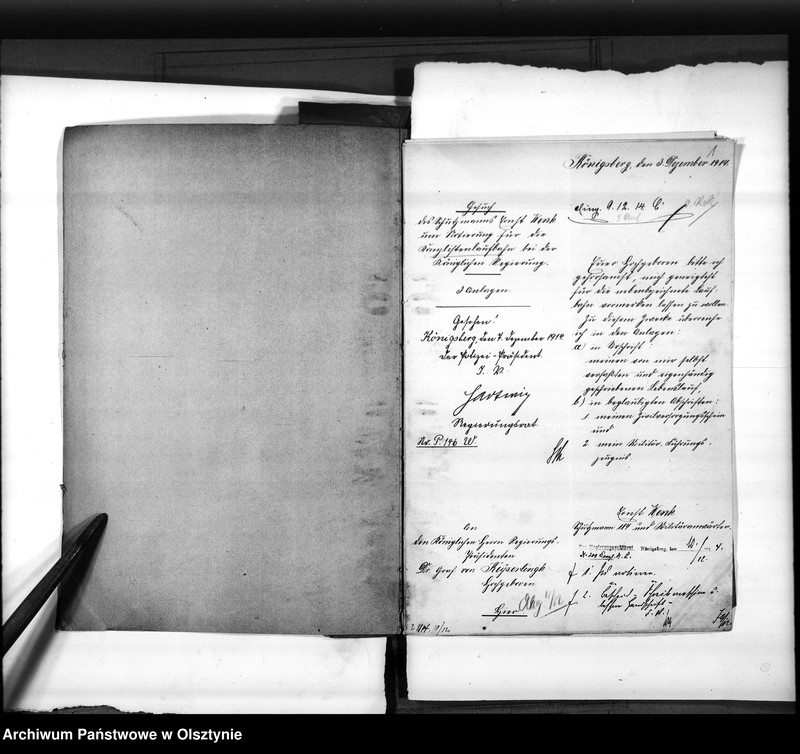 1
Königsberg, den 3. Dezember 1914.
Gesuch
des Schutzmanns Ernst Wenk
um Notierung für die
Kanzlistenlaufbahn bei der
Königlichen Regierung.
3 Anlagen
Gesehen!
Königsberg, den 7. Dezember 1914.
Der Polizei-Präsident
J. V.
Hartwig
Regierungsrat
Nr. P. 146 W
An
den Königlichen Herrn Regierungs-
Präsidenten
Dr. Graf von Keyserlingk
Hochgeboren
Hier
Eing. 9. 12. 14
Euer Hochgeboren bitte ich
gehorsamst, mich geneigtest
für die nebenbezeichnete Lauf-
bahn vormerken lassen zu wollen.
Zu diesem Zwecke überreiche
ich in den Anlagen:
a) in Urschrift:
meinen von mir selbst
verfaßten und eigenhändig
geschriebenen Lebenslauf,
b) in beglaubigten Abschriften:
1. meinen Zivilversorgungsschein
und
2. mein Militär-Führungs-
zeugnis.
Ernst Wenk
Schutzmann 114 und Militäranwärter.
Der Regierungspräsident. Königsberg, den
1. Ist notieren.
2.
Archiwum Państwowe w Olsztynie